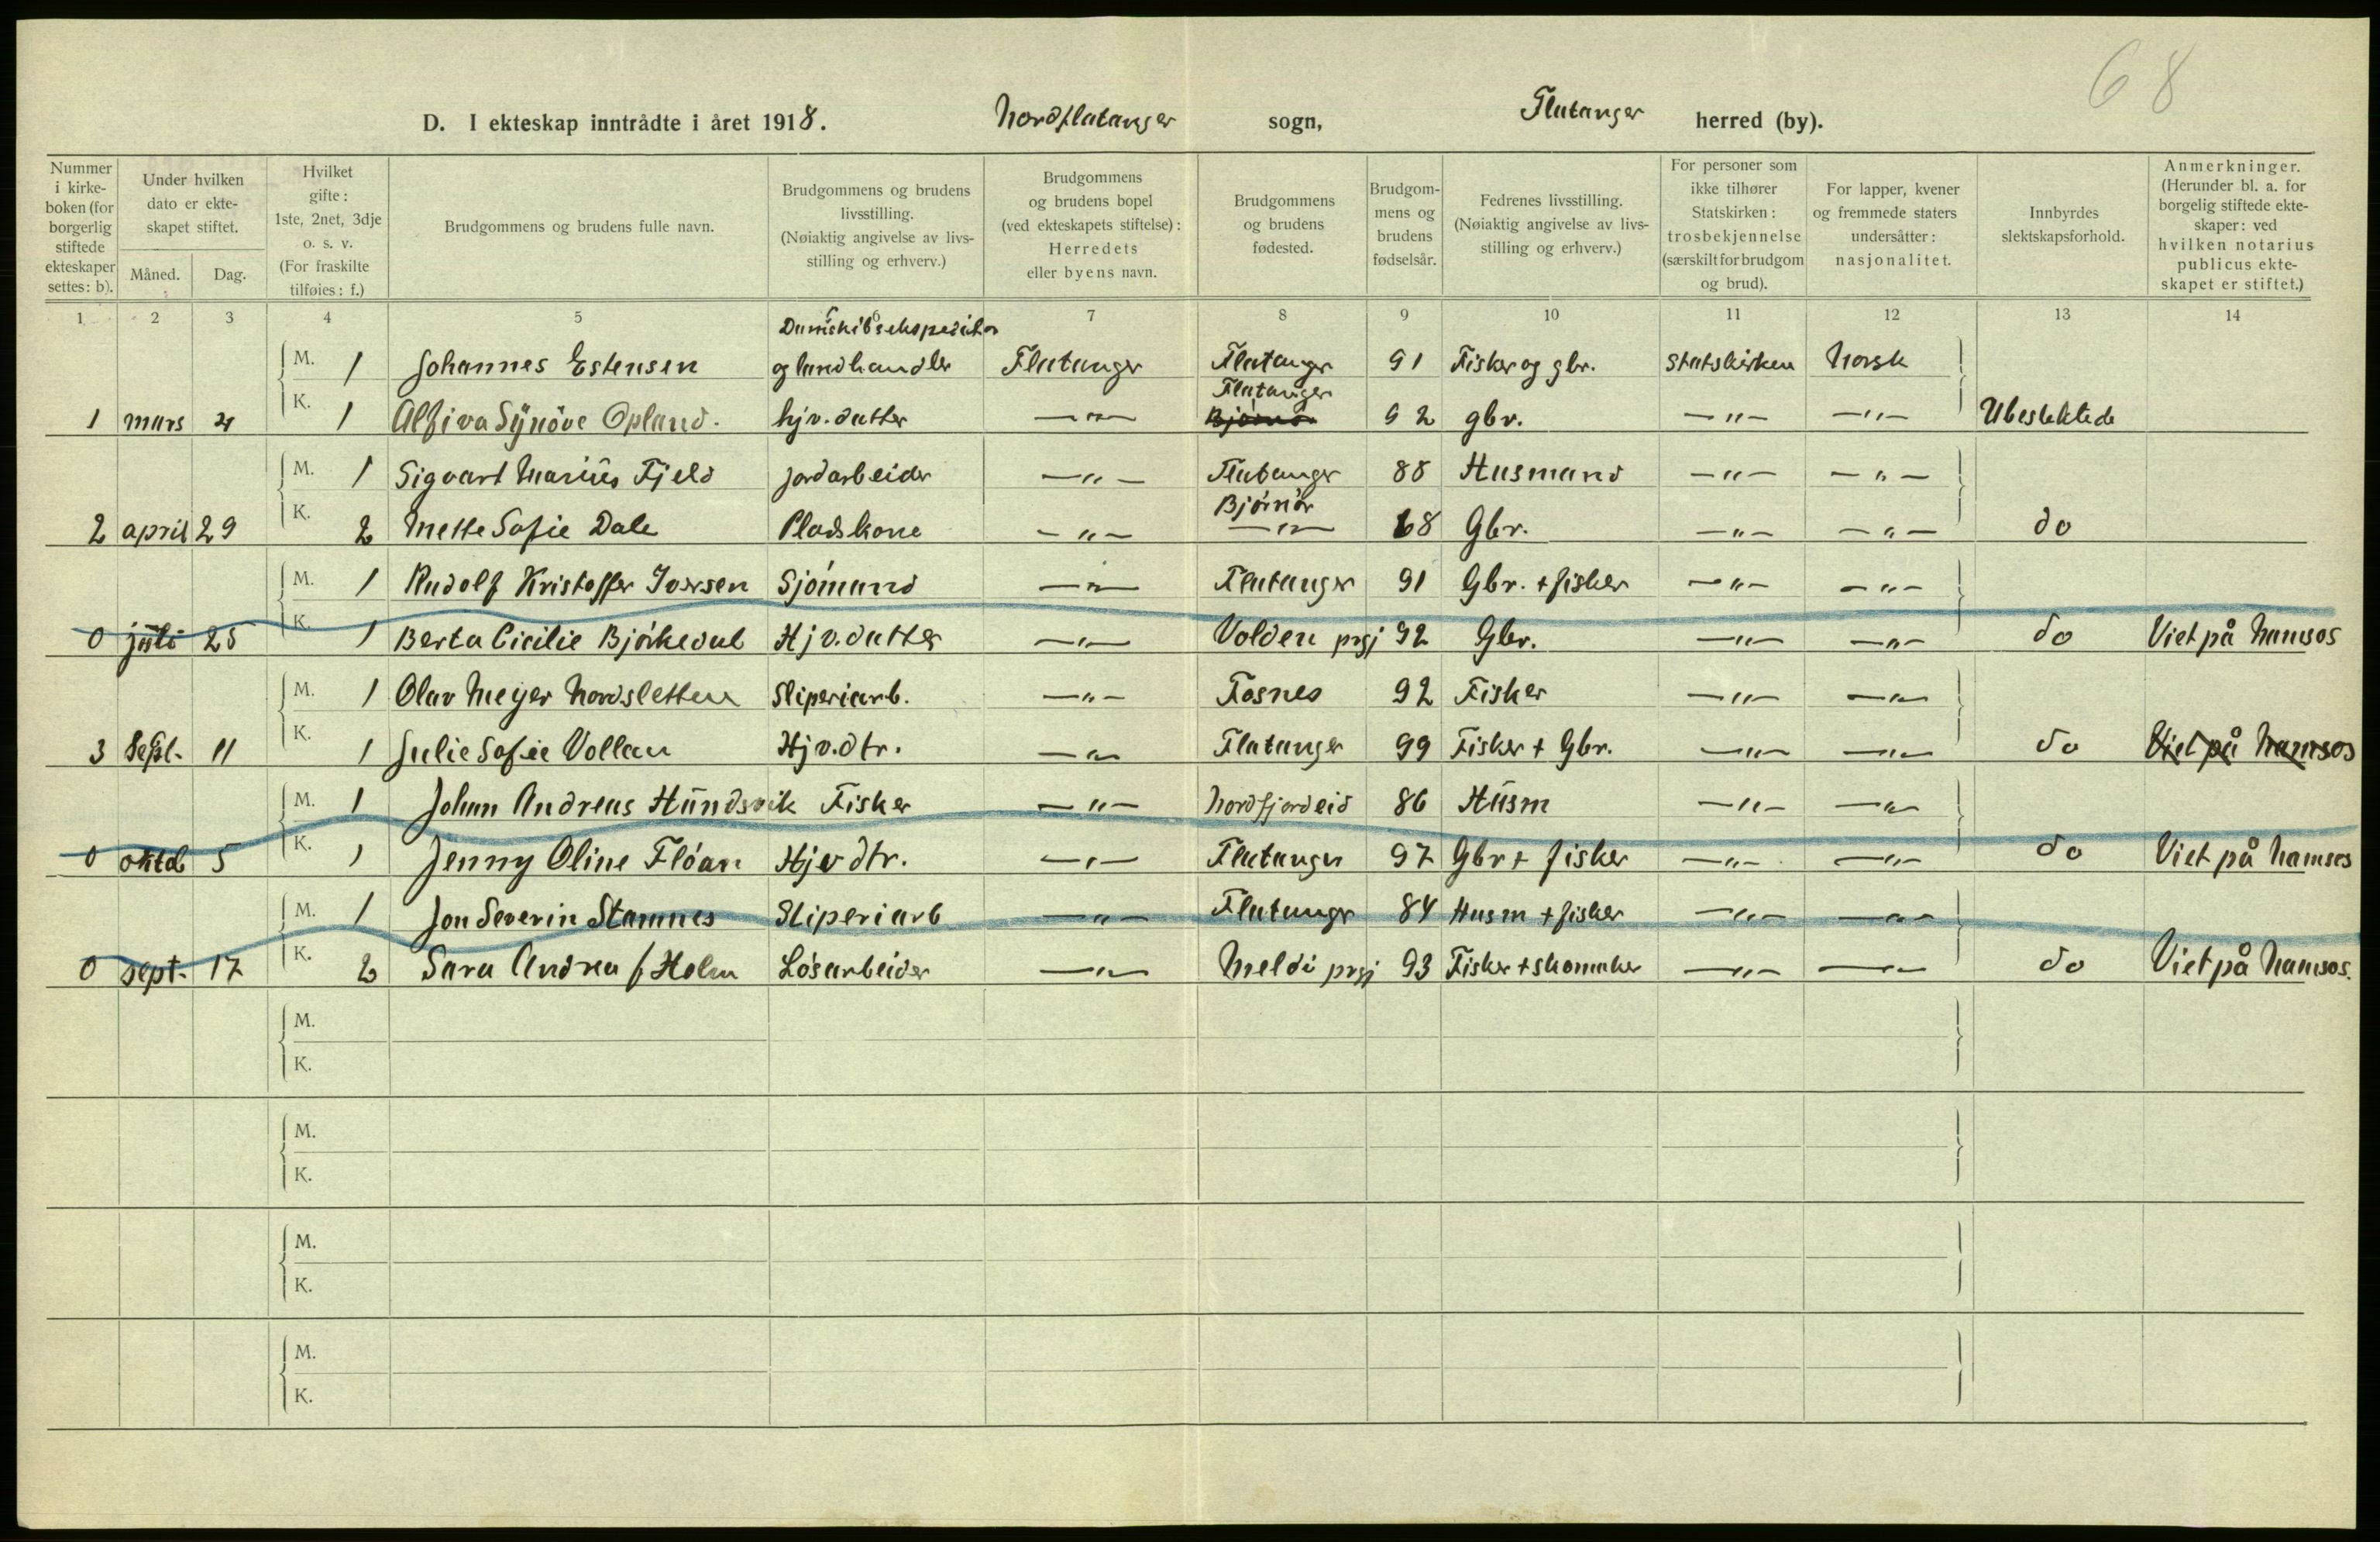 68
D. I ekteskap inntrådte i året 1918. Nordflatanger sogn, Flatanger herred (by).
Nummer i kirke- boken (for borgerlig stiftede ekteskaper settes: b).
Under hvilken dato er ekte- skapet stiftet.
Måned. Dag.
Hvilket gifte: 1ste, 2net, 3dje o. s. v. (For fraskilte tilføies: f.)
Brudgommens og brudens fulle navn.
Brudgommens og brudens livsstilling. (Nøiaktig angivelse av livs- stilling og erhverv.)
Brudgommens og brudens bopel (ved ekteskapets stiftelse): Herredets eller byens navn.
Brudgommens og brudens fødested.
Brudgom- mens og brudens fødselsår.
Fedrenes livsstilling. (Nøiaktig angivelse av livs- stilling og erhverv.)
For personer som ikke tilhører Statskirken: trosbekjennelse (særskilt for brudgom og brud).
For lapper, kvener og fremmede staters undersåtter: nasjonalitet.
Innbyrdes slektskapsforhold.
Anmerkninger. (Herunder bl. a. for borgelig stiftede ekte- skaper: ved hvilken notarius publicus ekte- skapet er stiftet.)
1 2 3 4 5 6 7 8 9 10 11 12 13 14
Damskibsekspeditør
M. 1 Johannes Estensen og landhandler Flatanger Flatanger 91 Fisker og gbr. Statskirken Norsk
Flatanger
1 mars 4 K. 1 Alfiva Synöve Opland. hjv. datter —"— Bjørnør 92 gbr. —"— —"— Ubeslektede
M. 1 Sigvart Marius Fjeld jordarbeider —"— Flatanger 88 Husmand —"— —"—
Bjørnör
2 april 29 K. 2 Mette Sofie Dale Pladskone —"— —"— 68 Gbr. —"— —"— do
M. 1 Rudolf Kristoffer Iversen Sjömand —"— Flatanger 91 Gbr. + fisker —"— —"—
0 juli 25 K. 1 Berta Cicilie Björkedal Hjv. datter —"— Volden prgj 92 Gbr. —"— —"— do Viet på Namsos
M. 1 Olav Meyer Nordsletten Sliperiarb. —"— Fosnes 92 Fisker —"— —"—
3 Sept. 11 K. 1 Julie Sofie Vollan Hjv. dtr. —"— Flatanger 99 Fisker + Gbr. —"— —"— do Viet på Namsos
M. 1 Johan Andreas Hundsvik Fisker —"— Nordfjordeid 86 Husm —"— —"—
0 oktob 5 K. 1 Jenny Oline Flöan Hjv dtr. —"— Flatanger 97 Gbr + fisker —"— —"— do Viet på Namsos
M. 1 Jon Severin Stamnes Sliperiarb —"— Flatanger 84 Husm + fisker —"— —"—
0 sept. 17 K. 2 Sara Andrea f Holm Lösarbeider —"— Melöi prgj 93 Fisker + skomaker —"— —"— do Viet på Namsos.
M.
K.
M.
K.
M.
K.
M.
K.